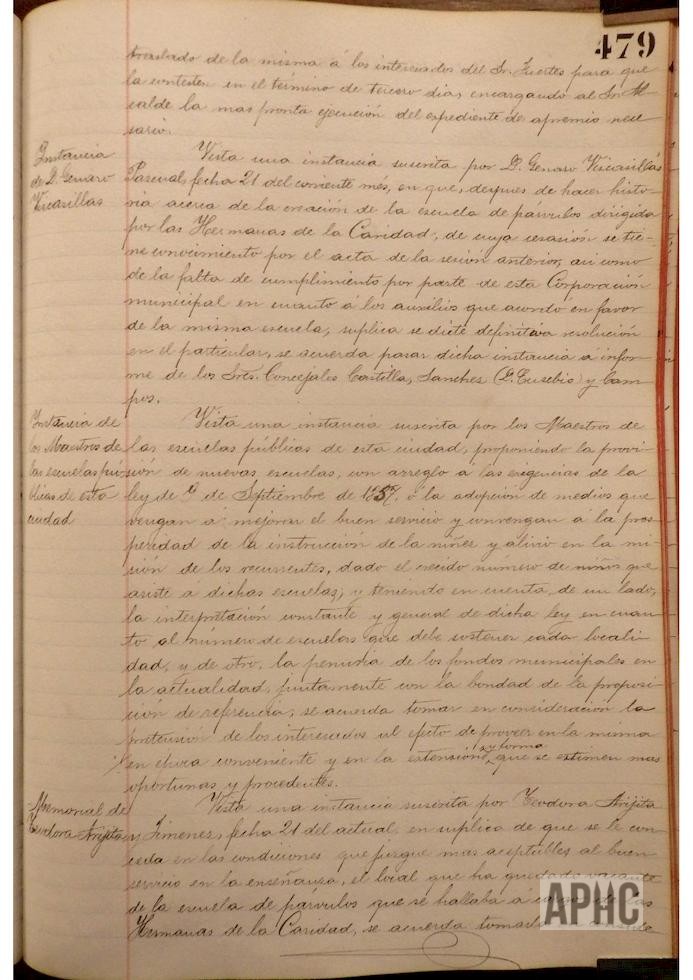 479
traslado de la misma á los interesados del Sr. Fuertes para que
la contesten en el término de tercero dia, encargando al Sr. Al-
calde la mas pronta ejecución del expediente de apremio nece
sario.
Instancia
de D. Genaro
Vicasillas
Vista una instancia suscrita por D. Genaro Viscasillas
Pascual, fecha 21 del corriente més, en que, despues de hacer histo-
ria acerca de la creación de la escuela de párvulos dirigida
por las Hermanas de la Caridad, de cuya cesación se tie-
ne conocimiento por el acta de la sesion anterior, asi como
de la falta de cumplimiento por parte de esta Corporación
municipal en cuanto á los auxilios que acordó en favor
de la misma escuela, suplica se dicte definitiva resolución
en el particular, se acuerda pasar dicha instancia a infor-
me de los Sres. Concejales Castilla, Sanchez (D. Eusebio) y Cam
pos.
Instancia de
los Maestros de
las escuelas pú-
blicas de esta
ciudad
Vista una instancia suscrita por los Maestros de
las escuelas públicas de esta ciudad, proponiendo la provi-
sión de nuevas escuelas, con arreglo á las exigencias de la
ley de 9 de Septiembre de 1857, ó la adopción de medios que
vengan á mejorar el buen servicio y convengan á la pros
peridad de la instrucción de la niñez y alivio en la mi-
sión de los recurrentes, dado el crecido numero de niños que
asiste á dichas escuelas; y teniendo en cuenta, de un lado,
la interpretación constante y general de dicha ley en cuan-
to al numero de escuelas que debe sostener cada locali-
dad, y de otro, la penuria de los fondos municipales en
la actualidad, juntamente con la bondad de la proposi-
ción de referencia, se acuerda tomar en consideración la
pretensión de los interesados al efecto de proveer en la misma
en época conveniente y en la extensión y forma que se estimen mas
oportunas y procedentes.
Memorial de
Teodora Arijita
Vista una instancia suscrita por Teodora Arijita
y Jimenez, fecha 21 del actual, en suplica de que se le con
ceda en las condiciones que juzgue mas aceptables al buen
servicio en la enseñanza, el local que ha quedado vacante
de la escuela de párvulos que se hallaba á cargo de las
Hermanas de la Caridad, se acuerda tomarla en conside
APHC